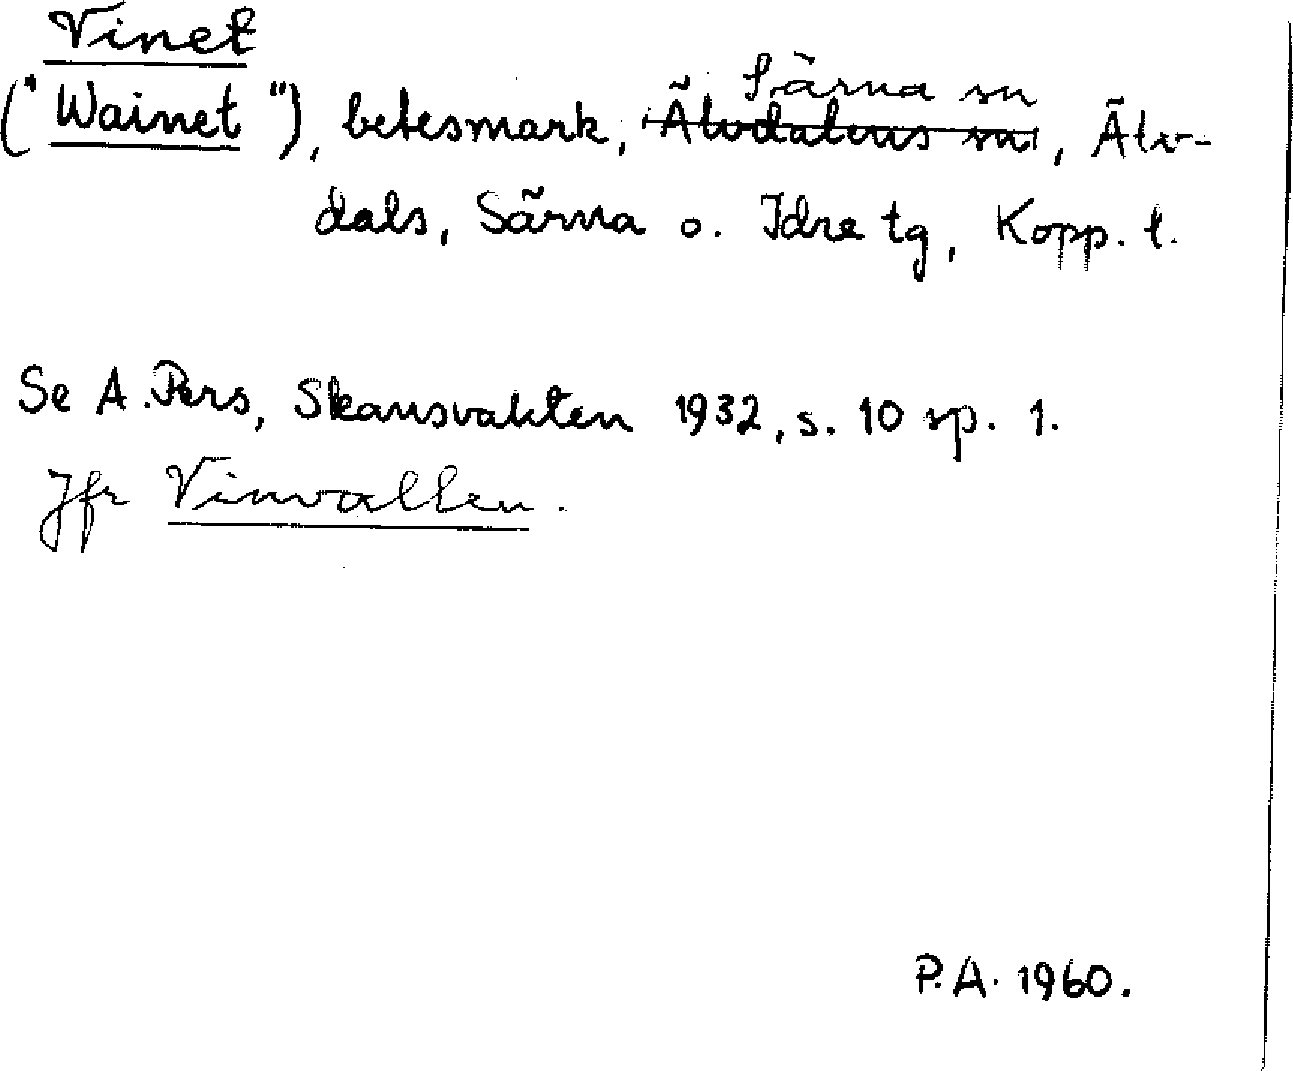 Vinet
("Wainet"), betesmark, Älvdalens sn Särna sn, Älv-
dals, Särna o. Idre tg, Kopp. l.
Se A. Pers, Skansvakten 1932, s. 10 sp. 1.
Jfr Vinvallen.
P.A. 1960.